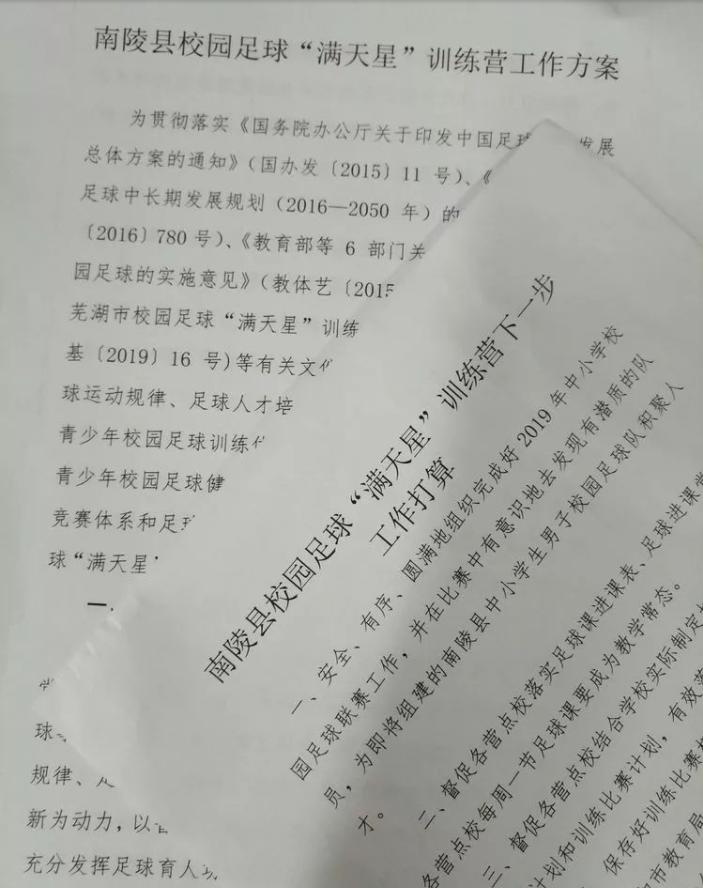 南陵县校园足球“满天星”训练营工作方案
为贯彻落实《国务院办公厅关于印发中国足球
发展
总体方案的通知》（国办发〔2015〕11 号）、《
足球中长期发展规划（2016—2050 年）的
〔2016〕780 号）、《教育部等 6 部门关
园足球的实施意见》（教体艺〔2015
芜湖市校园足球“满天星”训练
基〔2019〕16 号)等有关文
球运动规律、足球人才培
青少年校园足球训练
青少年校园足球健
竞赛体系和足
球“满天星”
一.
球
规律、
新为动力，以
充分发挥足球育人
南陵县校园足球“满天星”训练营下一步
工作打算
一、安全、有序、圆满地组织完成好 2019 年中小学校
园足球联赛工作，并在比赛中有意识地去发现有潜质的队
员，为即将组建的南陵县中小学生男子校园足球队积聚人
才。
二、督促各营点校落实足球课进课表、足球进课堂
各营点校每周一节足球课要成为教学常态。
三、督促各营点校结合学校实际制定
计划和训练比赛计划，有效
保存好训练比赛
市教育局